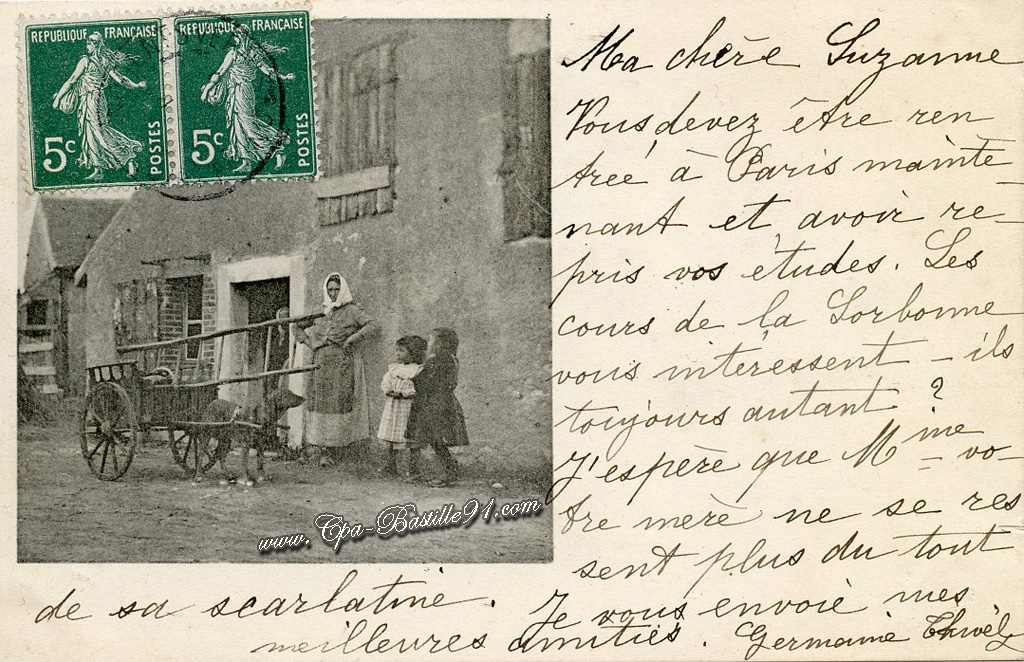 REPUBLIQUE FRANÇAISE
5c POSTES
REPUBLIQUE FRANÇAISE
5c POSTES
Ma chère Suzanne
Vous devez être ren
trée à Paris mainte
nant et avoir re-
pris vos études. Les
cours de la Sorbonne
vous intéressent - ils
toujours autant ?
J'espère que Mme vo-
tre mère ne se res
sent plus du tout
de sa scarlatine. Je vous envoie mes
meilleures amitiés. Germaine
www.Cpa-Bastille91.com